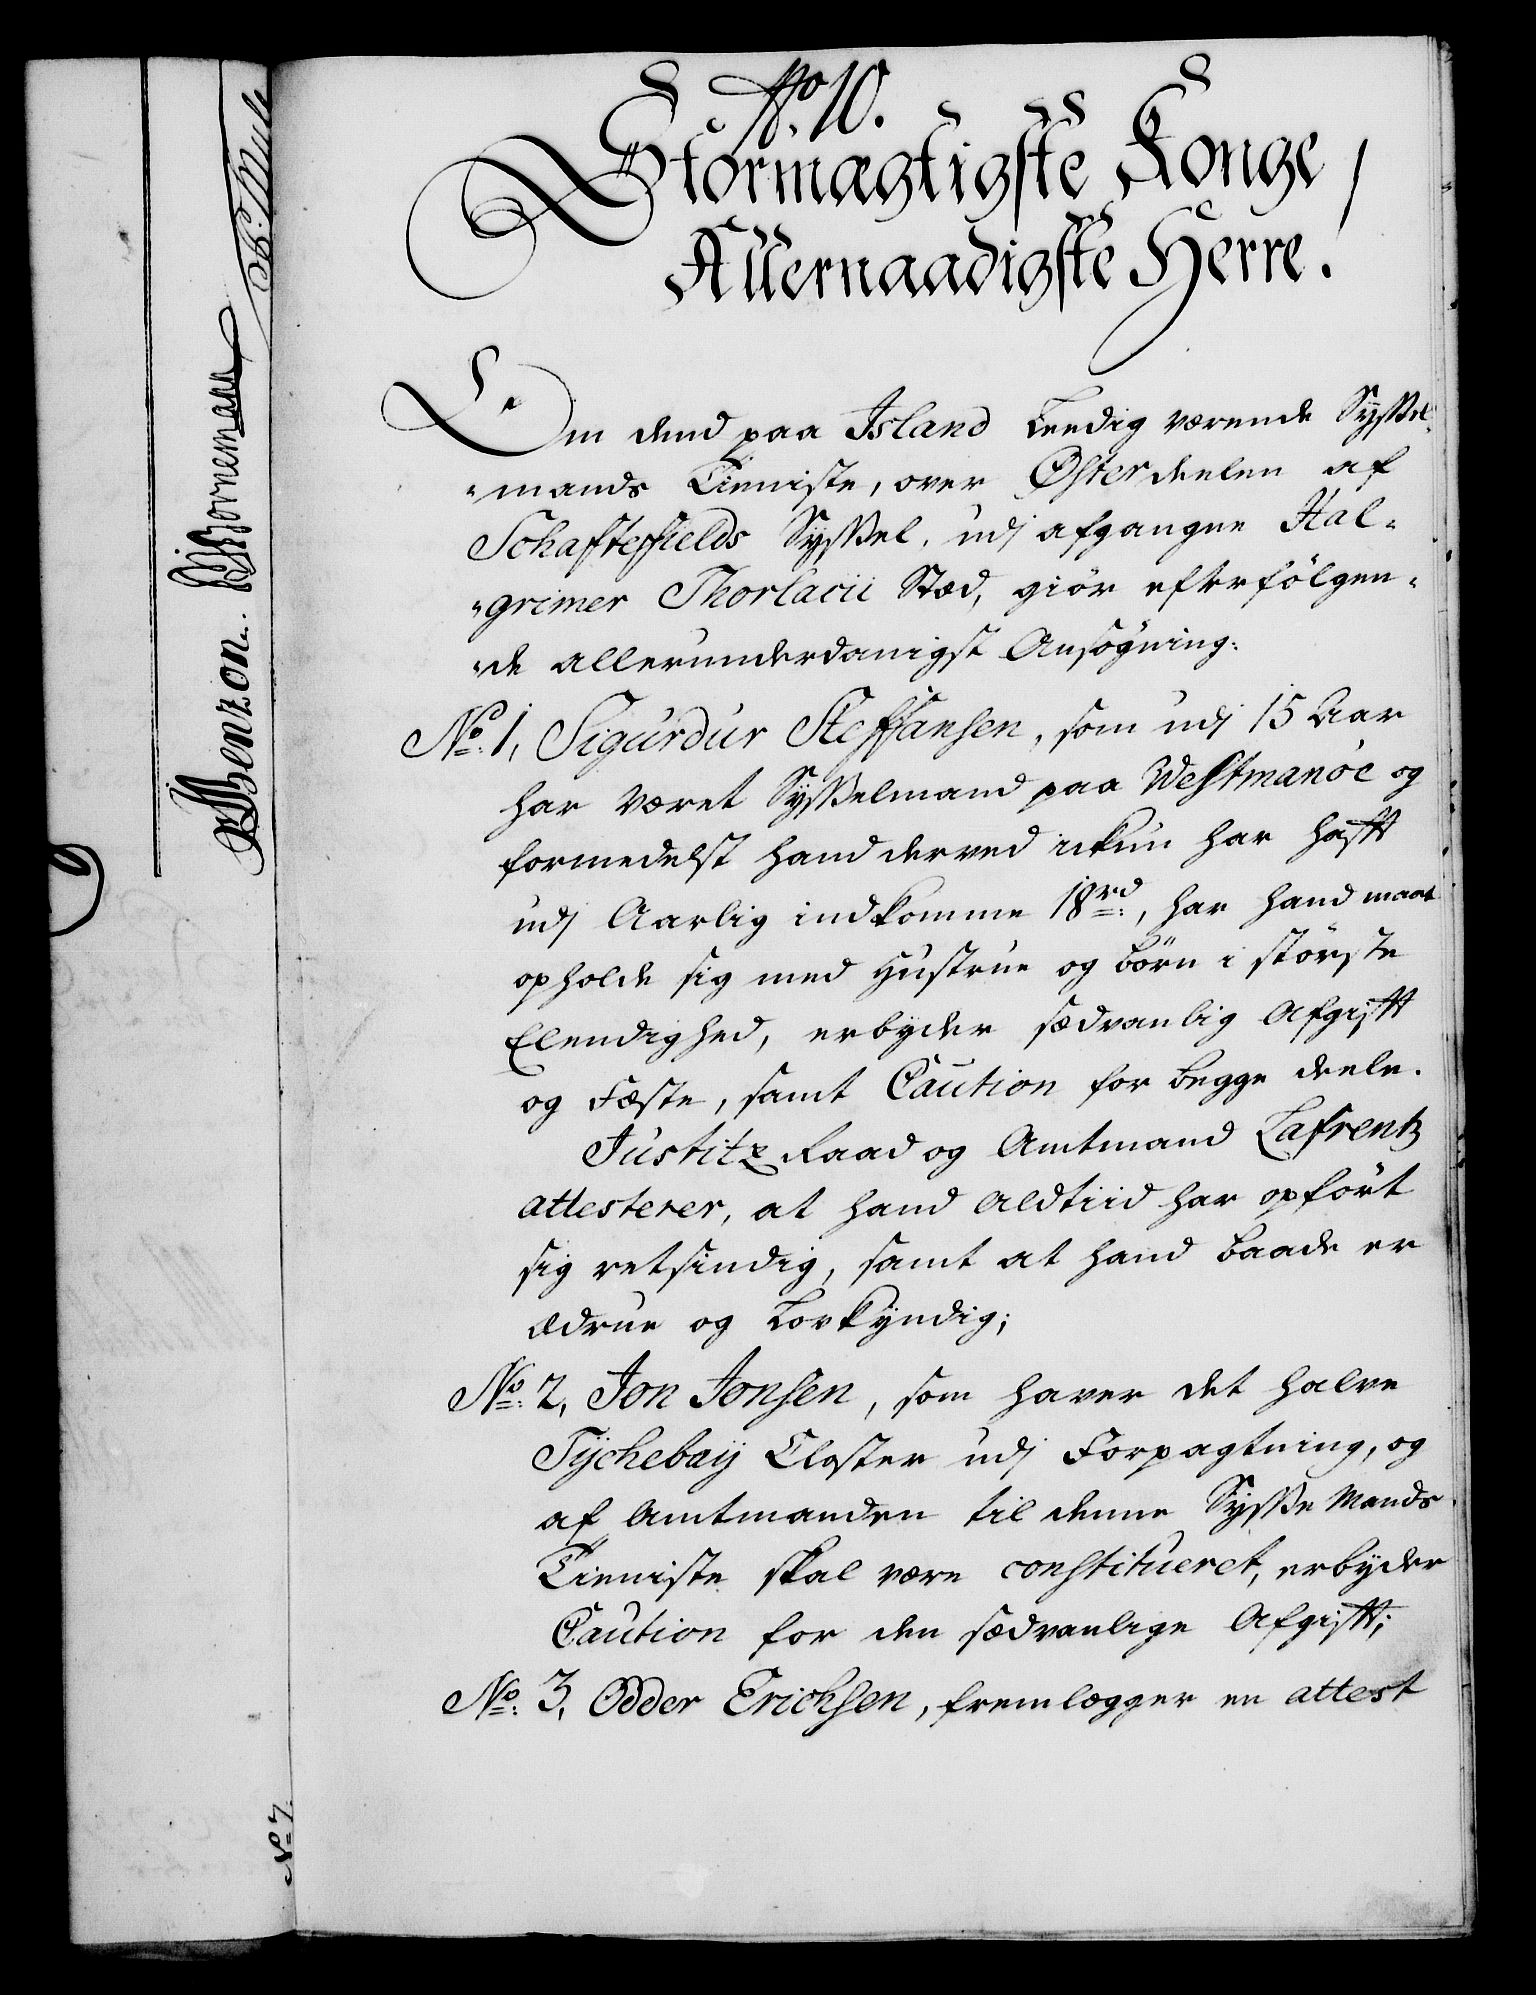 No. 10.
Stormægtigste Konge
Allernaadigste Herre.
Om dend paa Island Leedig værende Syssel-
"mands Tieniste, over Østerdeelen af
Schaftefields Syssel, udj afgangne Hal-
"grimer Thorlacii Stæd, giör efterfölgen-
"de allerunderdanigst Ansögning:
No. 1, Sigurdur Steffansen, som udj 15 Aar
har været Sysselmand paa Westmanöe og
formedelst hand derved ickun har hafft
udj Aarlig indkomme 18 rd:, har hand maat
opholde sig med Hustrue og börn i störste
Elendighed, erbyder sædvanlig Afgifft
og Fæste, samt Caution for begge deele.
Justitz Raad og Amtmand Lafrentz
attesterer, at hand Altiid har opfört
sig retsindig, samt at hand baade er
ædrue og Lovkyndig;
No. 2, Jon Jonsen, som haver det halve
Tychebaÿ Closter udj Forpagtning, og
af Amtmanden til denne Sysse Mands
Tieniste skal være constitueret, erbyder
Caution for den sædvanlige Afgifft;
No. 3, Odder Erichsen, fremlegger en attest
Benzon. Bornemann
No 7.